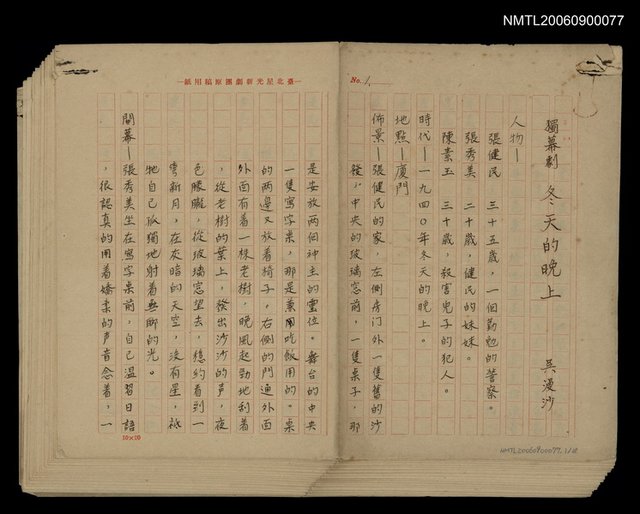 NMTL20060900077
No. 1.
獨幕劇 冬天的晚上
吳漫沙
人物—
張健民 三十五歲，一個勤勉的警察。
張秀美 二十歲，健民的妹妹。
陳素玉 三十歲，殺害兒子的犯人。
時代—一九四〇年冬天的晚上。
地點—廈門
佈景 張健民的家，左側房门外一隻舊的沙
發，中央的玻璃窓前，一隻桌子，那
NMTL20060900077, 1/18
—臺北星光新劇團原稿用紙—
是安放两個神主的靈位。舞台的中央
一隻寫字桌，那是兼用吃飯用的。桌
的两邊又放着椅子。右側的門通外面
外面有着一棵老樹，晚風起勁地刮着
，從老樹的葉上，發出沙沙的声，夜
色朦朧，從玻璃窓望去，穏約看到一
彎新月，在灰暗的天空，没有星，祗
牠自己孤獨地射着無聊的光。
開幕—張秀美坐在寫字桌前，自己温習日語
，很認真的用着嬌柔的声音念着，一
10×20